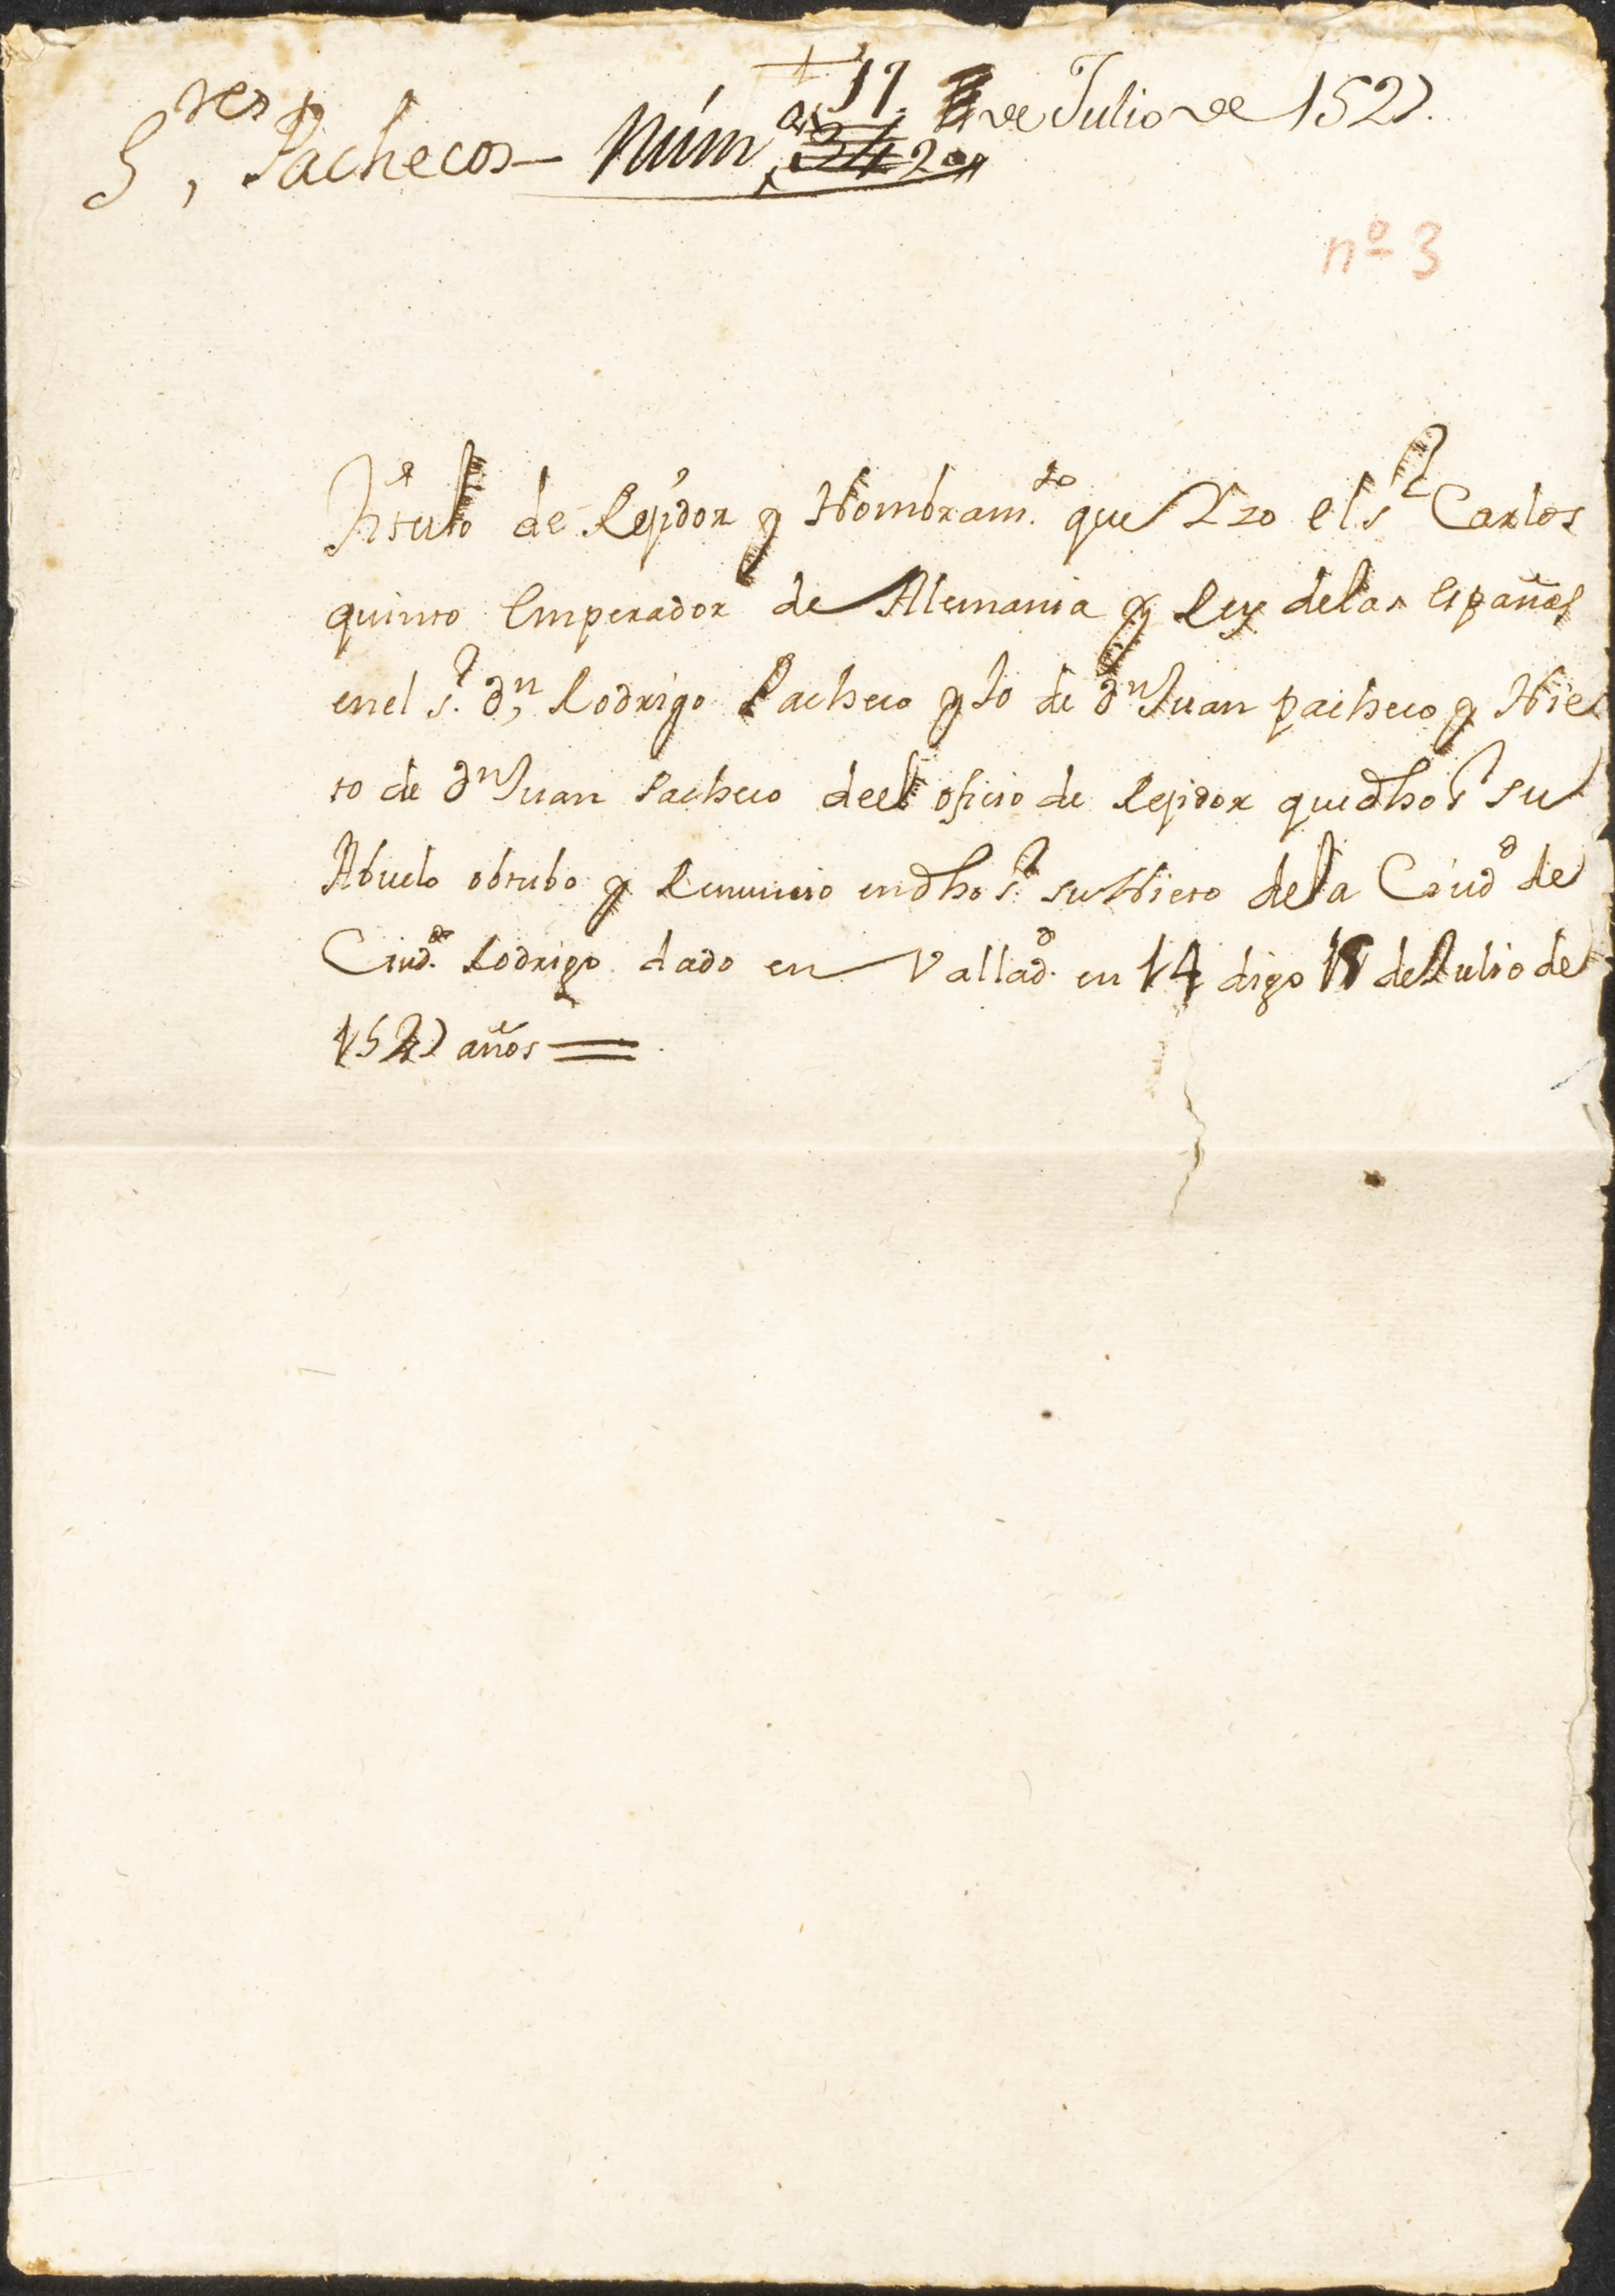 S.res Pachecos – Núm 2º 17. de Julio de 1527.
nº 3
Titulo de Rejidor y Nombram.to que Izo el s.r Carlos
quinto Emperador de Alemania y Rey de las españas
en el s.r dn Rodrigo Pacheco yJo de dn Juan pacheco y Nie
to de dn Juan Pacheco de el oficio de Rejidor que dho s.r su
Abuelo obtubo y Renuncio en dho s.r su Nieto de la Ciud.d de
Ciud.d Rodrigo dado en Vallad.d en 14 digo 17 de Julio de
1527 años =